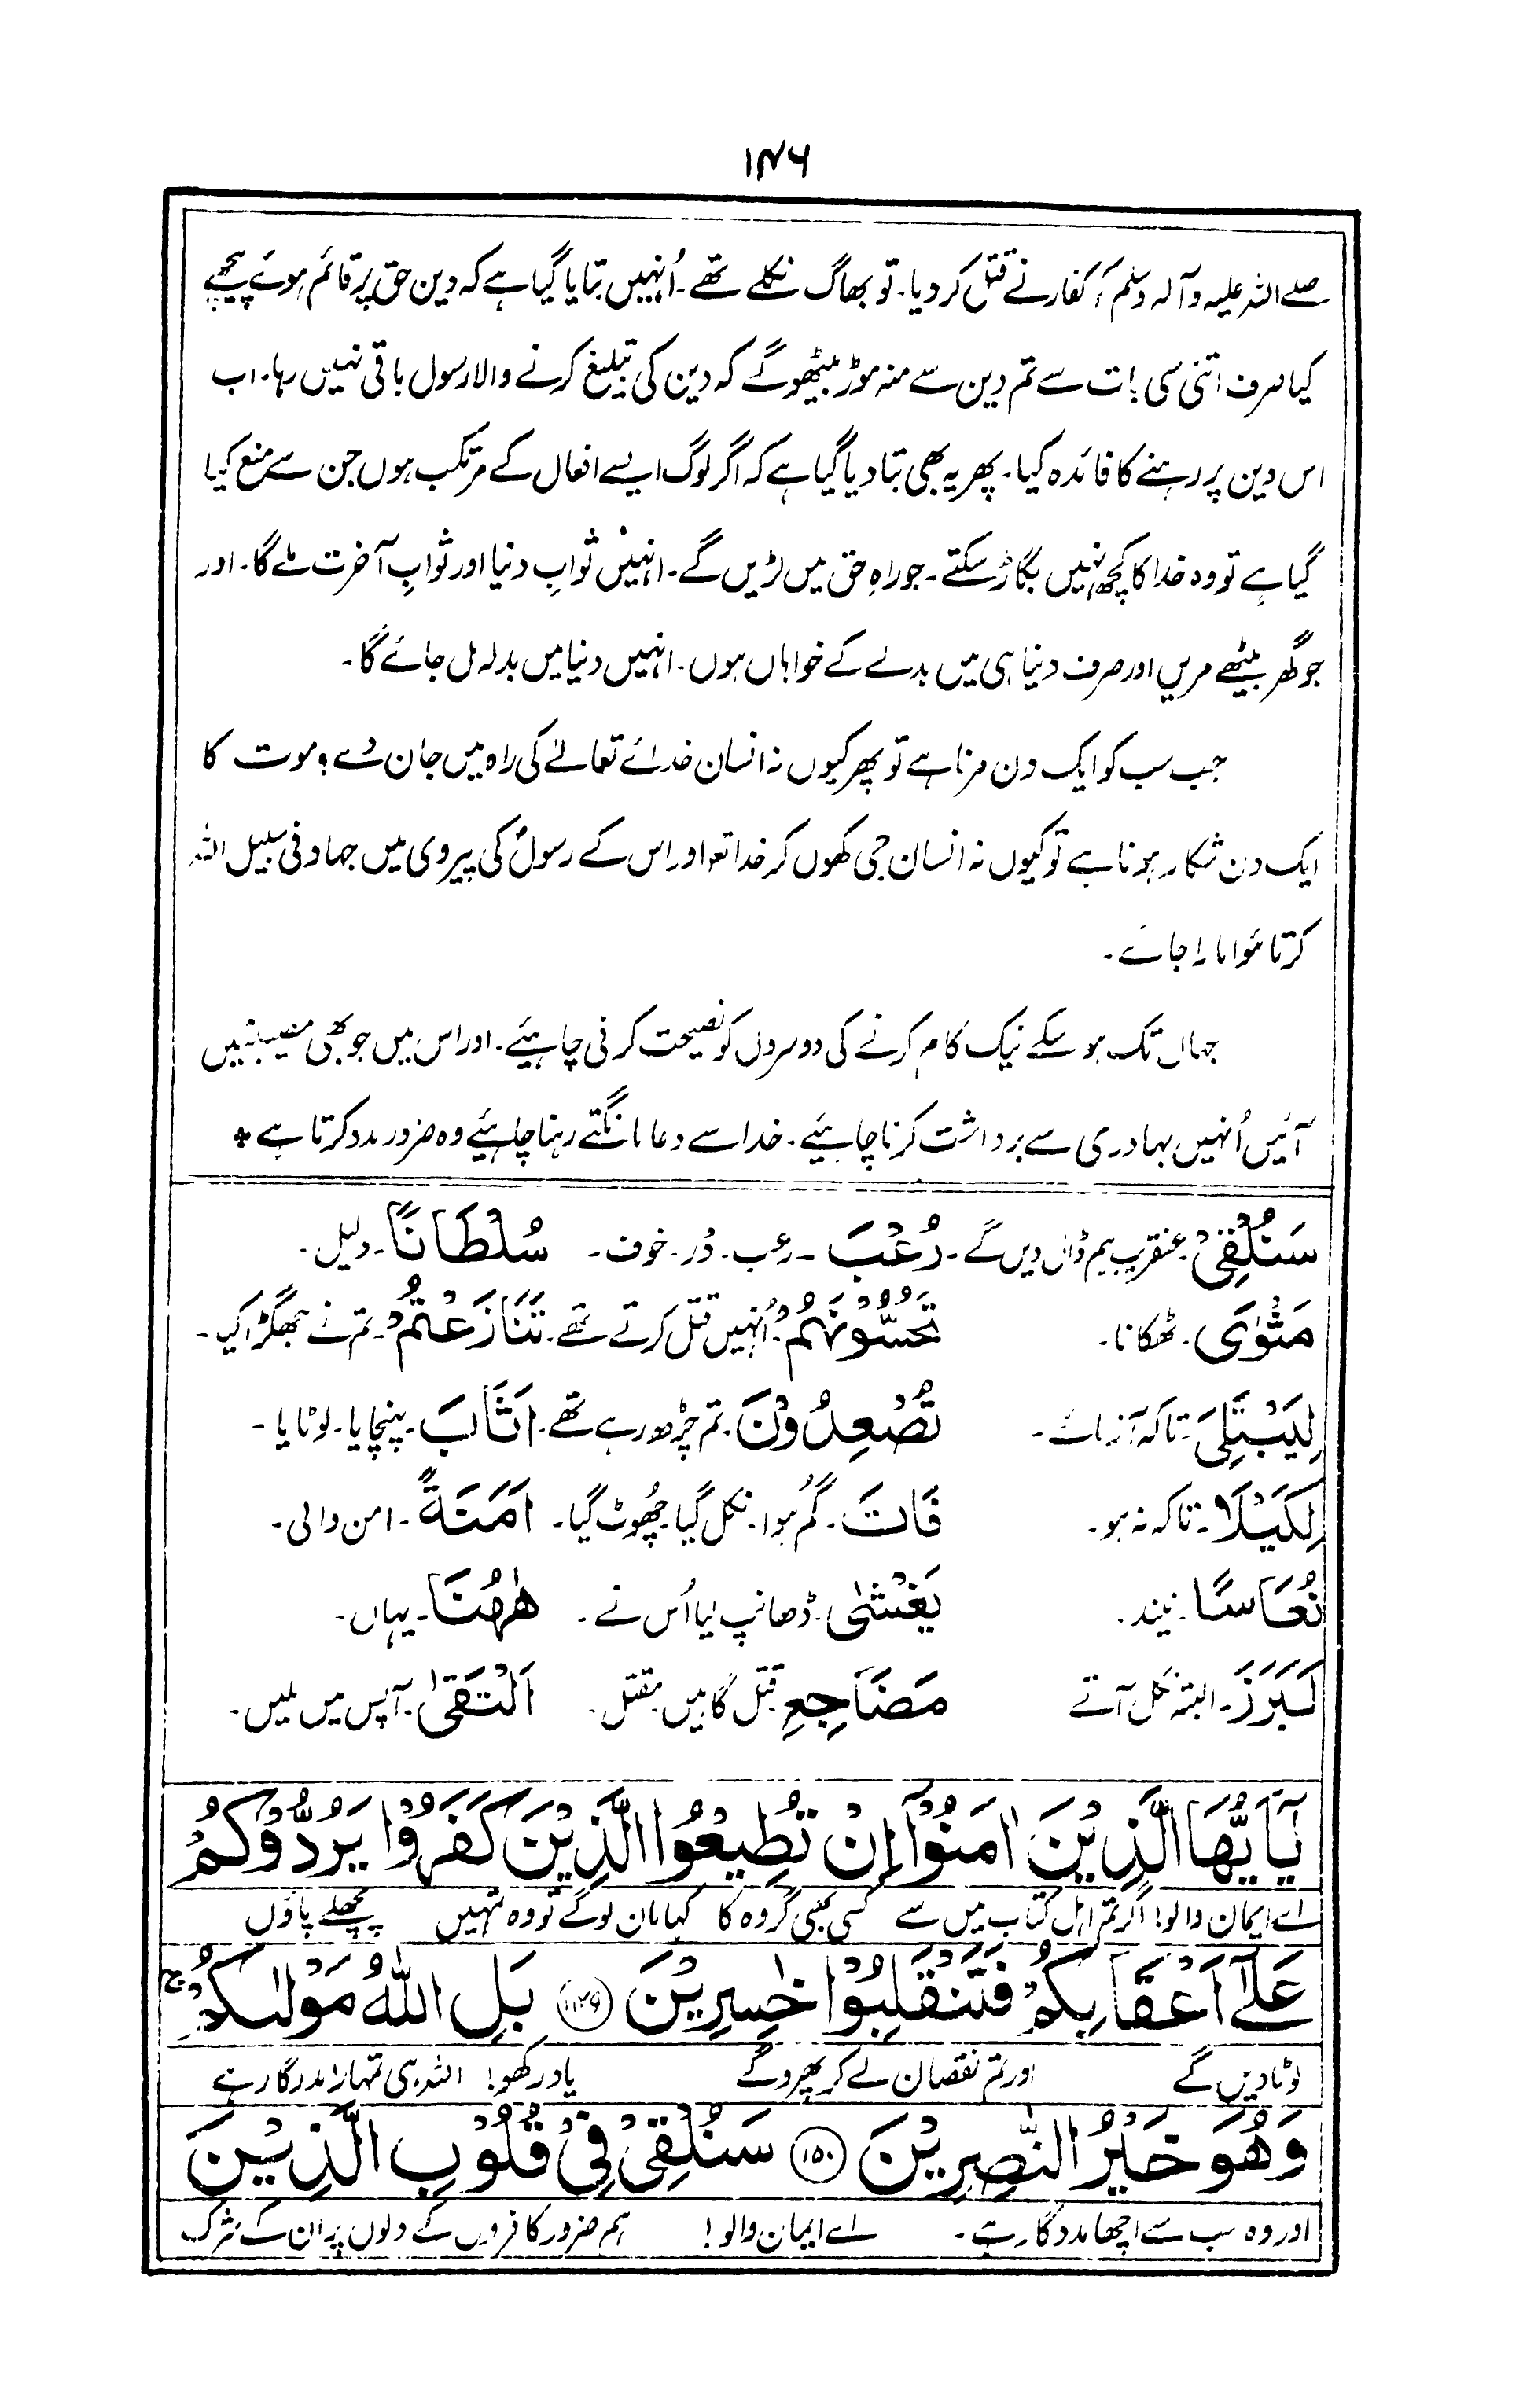 ۱۴۶
صلے اللہ علیہ وآلہ وسلم کفار نے قتل کر دیا۔ تو بھاگ نکلے تھے۔ اُنہیں بتایا گیا ہے کہ دین حق پر قائم ہوئے پیچھے
کیا صرف اتنی سی بات سے تم دین سے منہ موڑ بیٹھو گے کہ دین کی تبلیغ کرنے والا رسول باقی نہیں رہا۔ اب
اس دین پر رہنے کا فائدہ کیا۔ پھر یہ بھی بتا دیا گیا ہے کہ اگر لوگ ایسے افعال کے مرتکب ہوں جن سے منع کیا
گیا ہے تو وہ خدا کا کچھ نہیں بگاڑ سکتے۔ جو راہِ حق میں لڑیں گے۔ انہیں ثوابِ دنیا اور ثوابِ آخرت ملے گا۔ اور
جو گھر بیٹھے مریں اور صرف دنیا ہی میں بدلے کے خواہاں ہوں۔ انہیں دنیا میں بدلہ مل جائے گا۔
جب سب کو ایک دن مرنا ہے تو پھر کیوں نہ انسان خدائے تعالےٰ کی راہ میں جان دے؟ موت کا
ایک دن شکار ہونا ہے تو کیوں نہ انسان جی کھول کر خدا تعہ اور اس کے رسولؐ کی پیروی میں جہاد فی سبیل اللہ
کرتا ہؤا مارا جائے۔
جہاں تک ہو سکے نیک کام کرنے کی دوسروں کو نصیحت کرنی چاہیئے۔ اور اس میں جو بھی مصیبتیں
آئیں اُنہیں بہادری سے برداشت کرنا چاہیئے۔ خدا سے دعا مانگتے رہنا چاہیئے وہ ضرور مدد کرتا ہے *
سَنُلْقِیْ۔ عنقریب ہم ڈال دیں گے۔ رُعْبَ۔ رعب۔ ڈر۔ خوف۔ سُلْطَانًا۔ دلیل۔
مَثْوٰی۔ ٹھکانا۔ تَحُسُّوْنَهُمْ۔ اُنہیں قتل کرتے تھے۔ تَنَازَعْتُمْ۔ تم نے جھگڑا کیا۔
لِیَبْتَلِیَ۔ تاکہ آزمائے۔ تُصْعِدُوْنَ۔ تم چڑھ رہے تھے۔ اَثَابَ۔ پہنچایا۔ لوٹایا۔
لِکَیْلَا۔ تاکہ نہ ہو۔ فَاتَ۔ گم ہوا۔ نکل گیا۔ چُھوٹ گیا۔ اَمَنَةً۔ امن والی۔
نُعَاسًا۔ نیند۔ یَغْشٰی۔ ڈھانپ لیا اُس نے۔ هٰهُنَا۔ یہاں۔
لَبَرَزَ۔ البتہ نکل آتے مَضَاجِعِ۔ قتل گاہیں۔ مقتل۔ اَلْتَقٰی۔ آپس میں ملیں۔
یٰٓاَیُّهَا الَّذِیْنَ اٰمَنُوْٓا اِنْ تُطِیْعُوا الَّذِیْنَ کَفَرُوْا یَرُدُّوْکُمْ
اے ایمان والو! اگر تم اہل کتاب میں سے کسی بھی گروہ کا کہا مان لو گے تو وہ تمہیں پچھلے پاؤں
عَلٰٓی اَعْقَابِکُمْ فَتَنْقَلِبُوْا خٰسِرِیْنَ ۱۴۹ بَلِ اللّٰهُ مَوْلٰىکُمْ ج
لوٹا دیں گے اور تم نقصان لے کر پھرو گے یاد رکھو! اللہ ہی تمہارا مددگار ہے
وَهُوَ خَیْرُ النّٰصِرِیْنَ ۱۵۰ سَنُلْقِیْ فِیْ قُلُوْبِ الَّذِیْنَ
اور وہ سب سے اچھا مددگار ہے۔ اے ایمان والو! ہم ضرور کافروں کے دلوں پر ان کے شرک